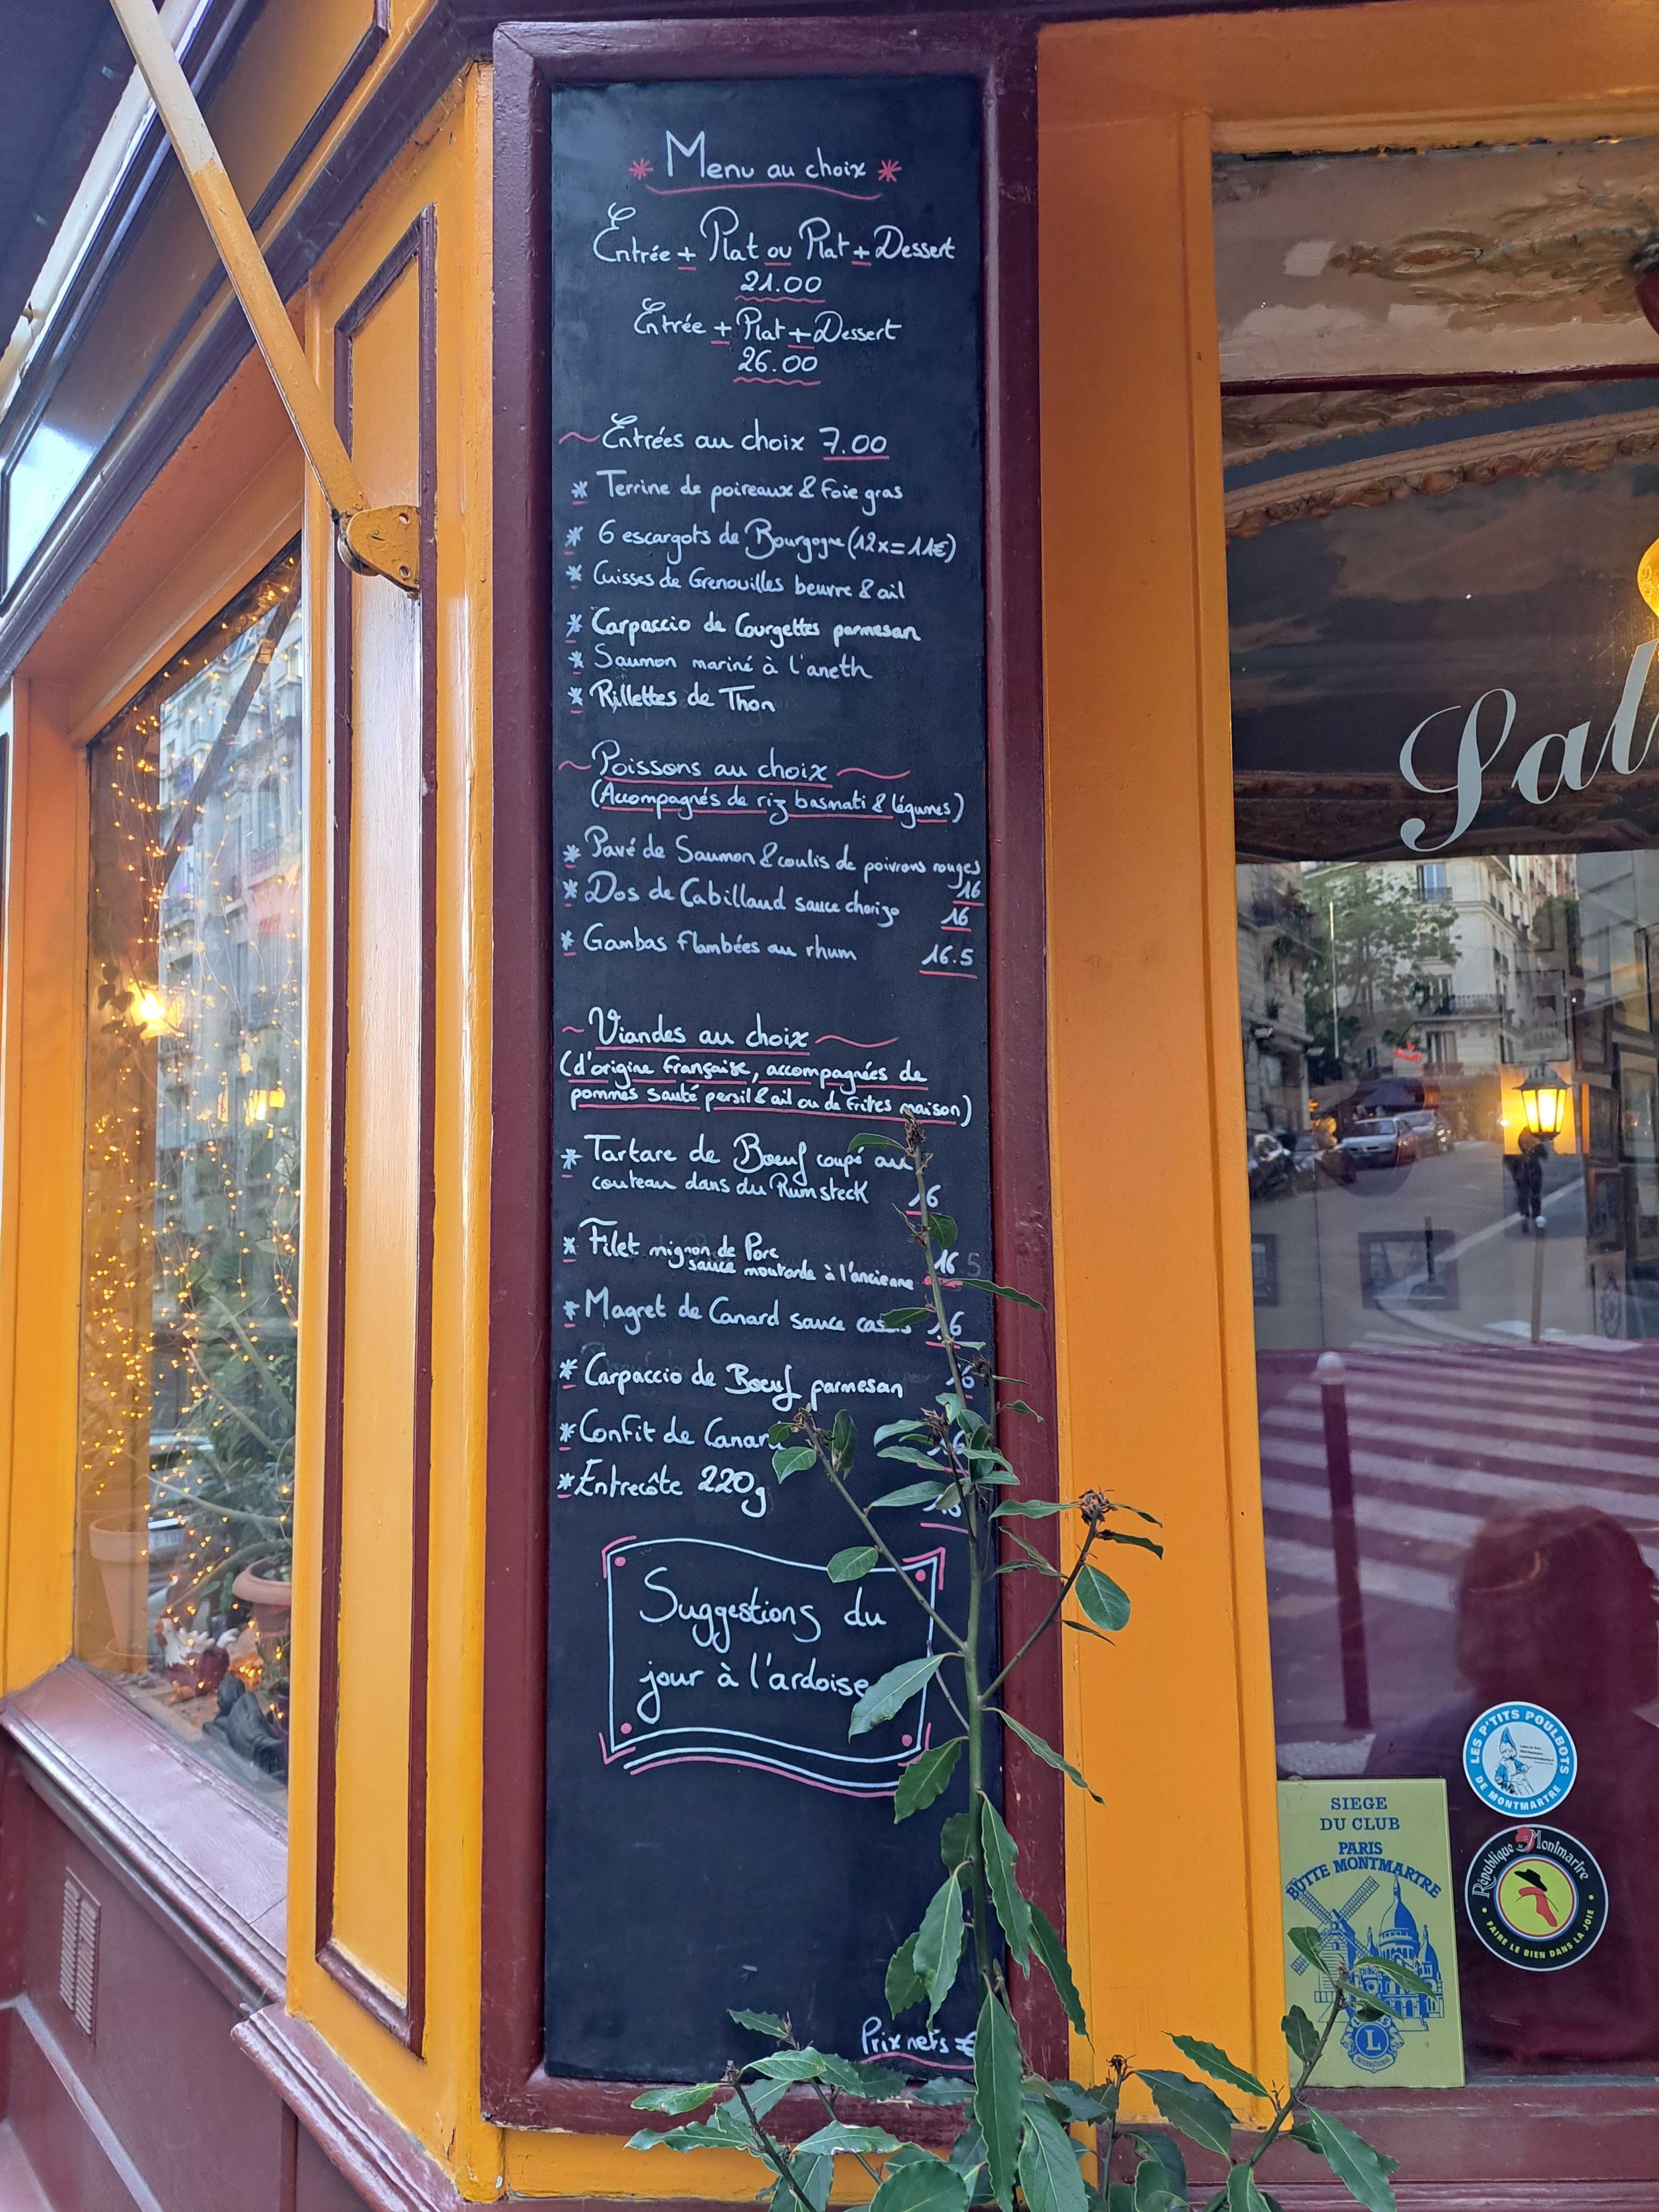 * Menu au choix *
Entrée + Plat ou Plat + Dessert
21.00
Entrée + Plat + Dessert
26.00
~ Entrées au choix 7.00
* Terrine de poireaux & Foie gras
* 6 escargots de Bourgogne (12x=11€)
* Cuisses de Grenouilles beurre & ail
* Carpaccio de Courgettes parmesan
* Saumon mariné à l'aneth
* Rillettes de Thon
~ Poissons au choix ~
(Accompagnés de riz basmati & légumes)
* Pavé de Saumon & coulis de poivrons rouges
16
* Dos de Cabillaud sauce chorizo 16
* Gambas flambées au rhum 16.5
~ Viandes au choix ~
(d'origine Française, accompagnées de
pommes sauté persil & ail ou de frites maison)
* Tartare de Boeuf coupé au
couteau dans du Rumsteck 16
* Filet mignon de Porc
sauce moutarde à l'ancienne 16
* Magret de Canard sauce 16
* Carpaccio de Boeuf parmesan
* Confit de Canard
* Entrecôte 220g
Suggestions du
jour à l'ardoise
Prix nets €
Sal
LES P'TITS POULBOTS
DE MONTMARTRE
SIEGE
DU CLUB
PARIS
BUTTE MONTMARTRE
L
INTERNATIONAL
République de Montmartre
• FAIRE LE BIEN DANS LA JOIE •